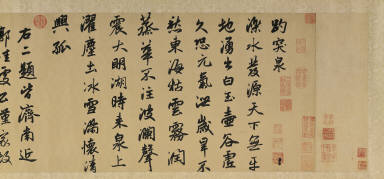 趵突泉
濼水發源天下無平
地湧出白玉壺谷虛
久恐元氣洩歲旱不
愁東海枯雲霧潤
蒸華不注波瀾聲
震大明湖時來泉上
濯塵土冰雪滿懷清
興孤
右二題皆濟南近
郭佳處公謹家故